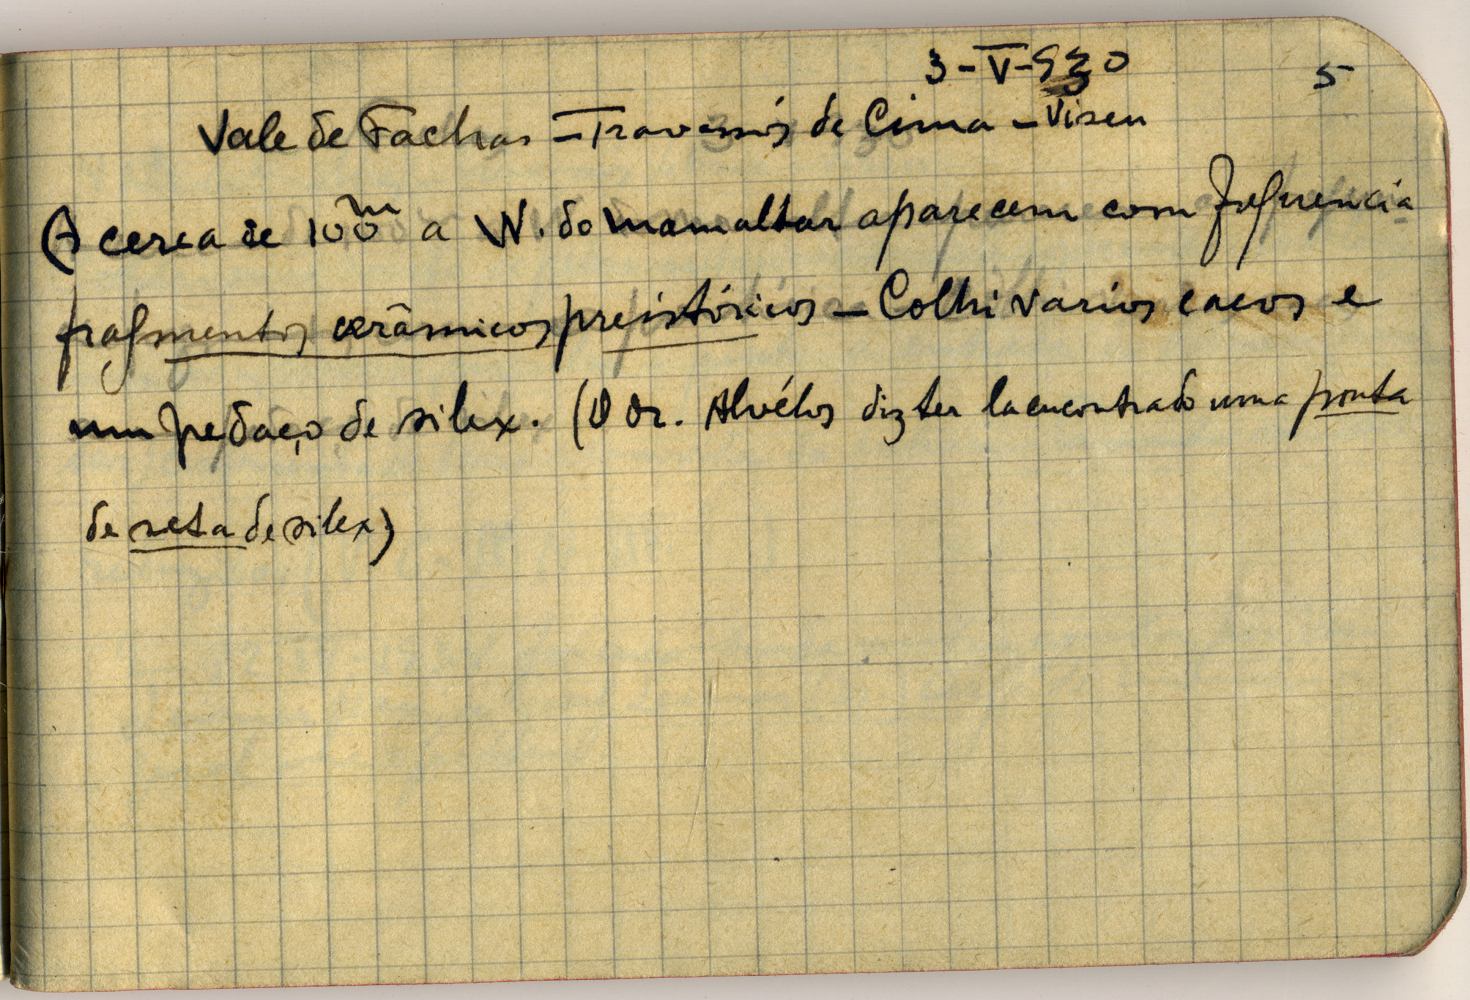 3-V-930 5
Vale de Fachas - Travassós de Cima - Viseu
A cerca de 100m a W. do mamaltar aparecem com frequencia
fragmentos cerâmicos preistóricos - Colhi varios cacos e
um pedaço de silex. (O Dr. Alvélos diz ter la encontrado uma ponta
de seta de silex)